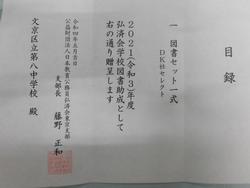 目録
一 図書セット一式
DK社セレクト
2021(令和3)年度
弘済会学校図書助成として
右の通り贈呈します
令和四年五月吉日
公益財団法人日本教育公務員弘済会東京支部
支部長 藤野 正和
文京区立第八中学校 殿